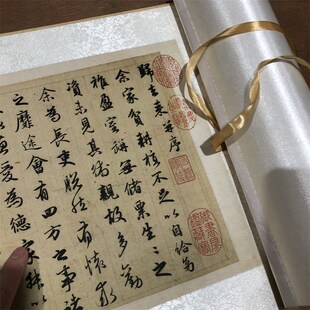 歸去來并序
余家貧耕植不足以自給幼
稚盈室缾無儲粟生々之
資未見其術親故多勸
余為長吏脫然有懷求
之靡途會有四方之事諸
愛為德家叔以